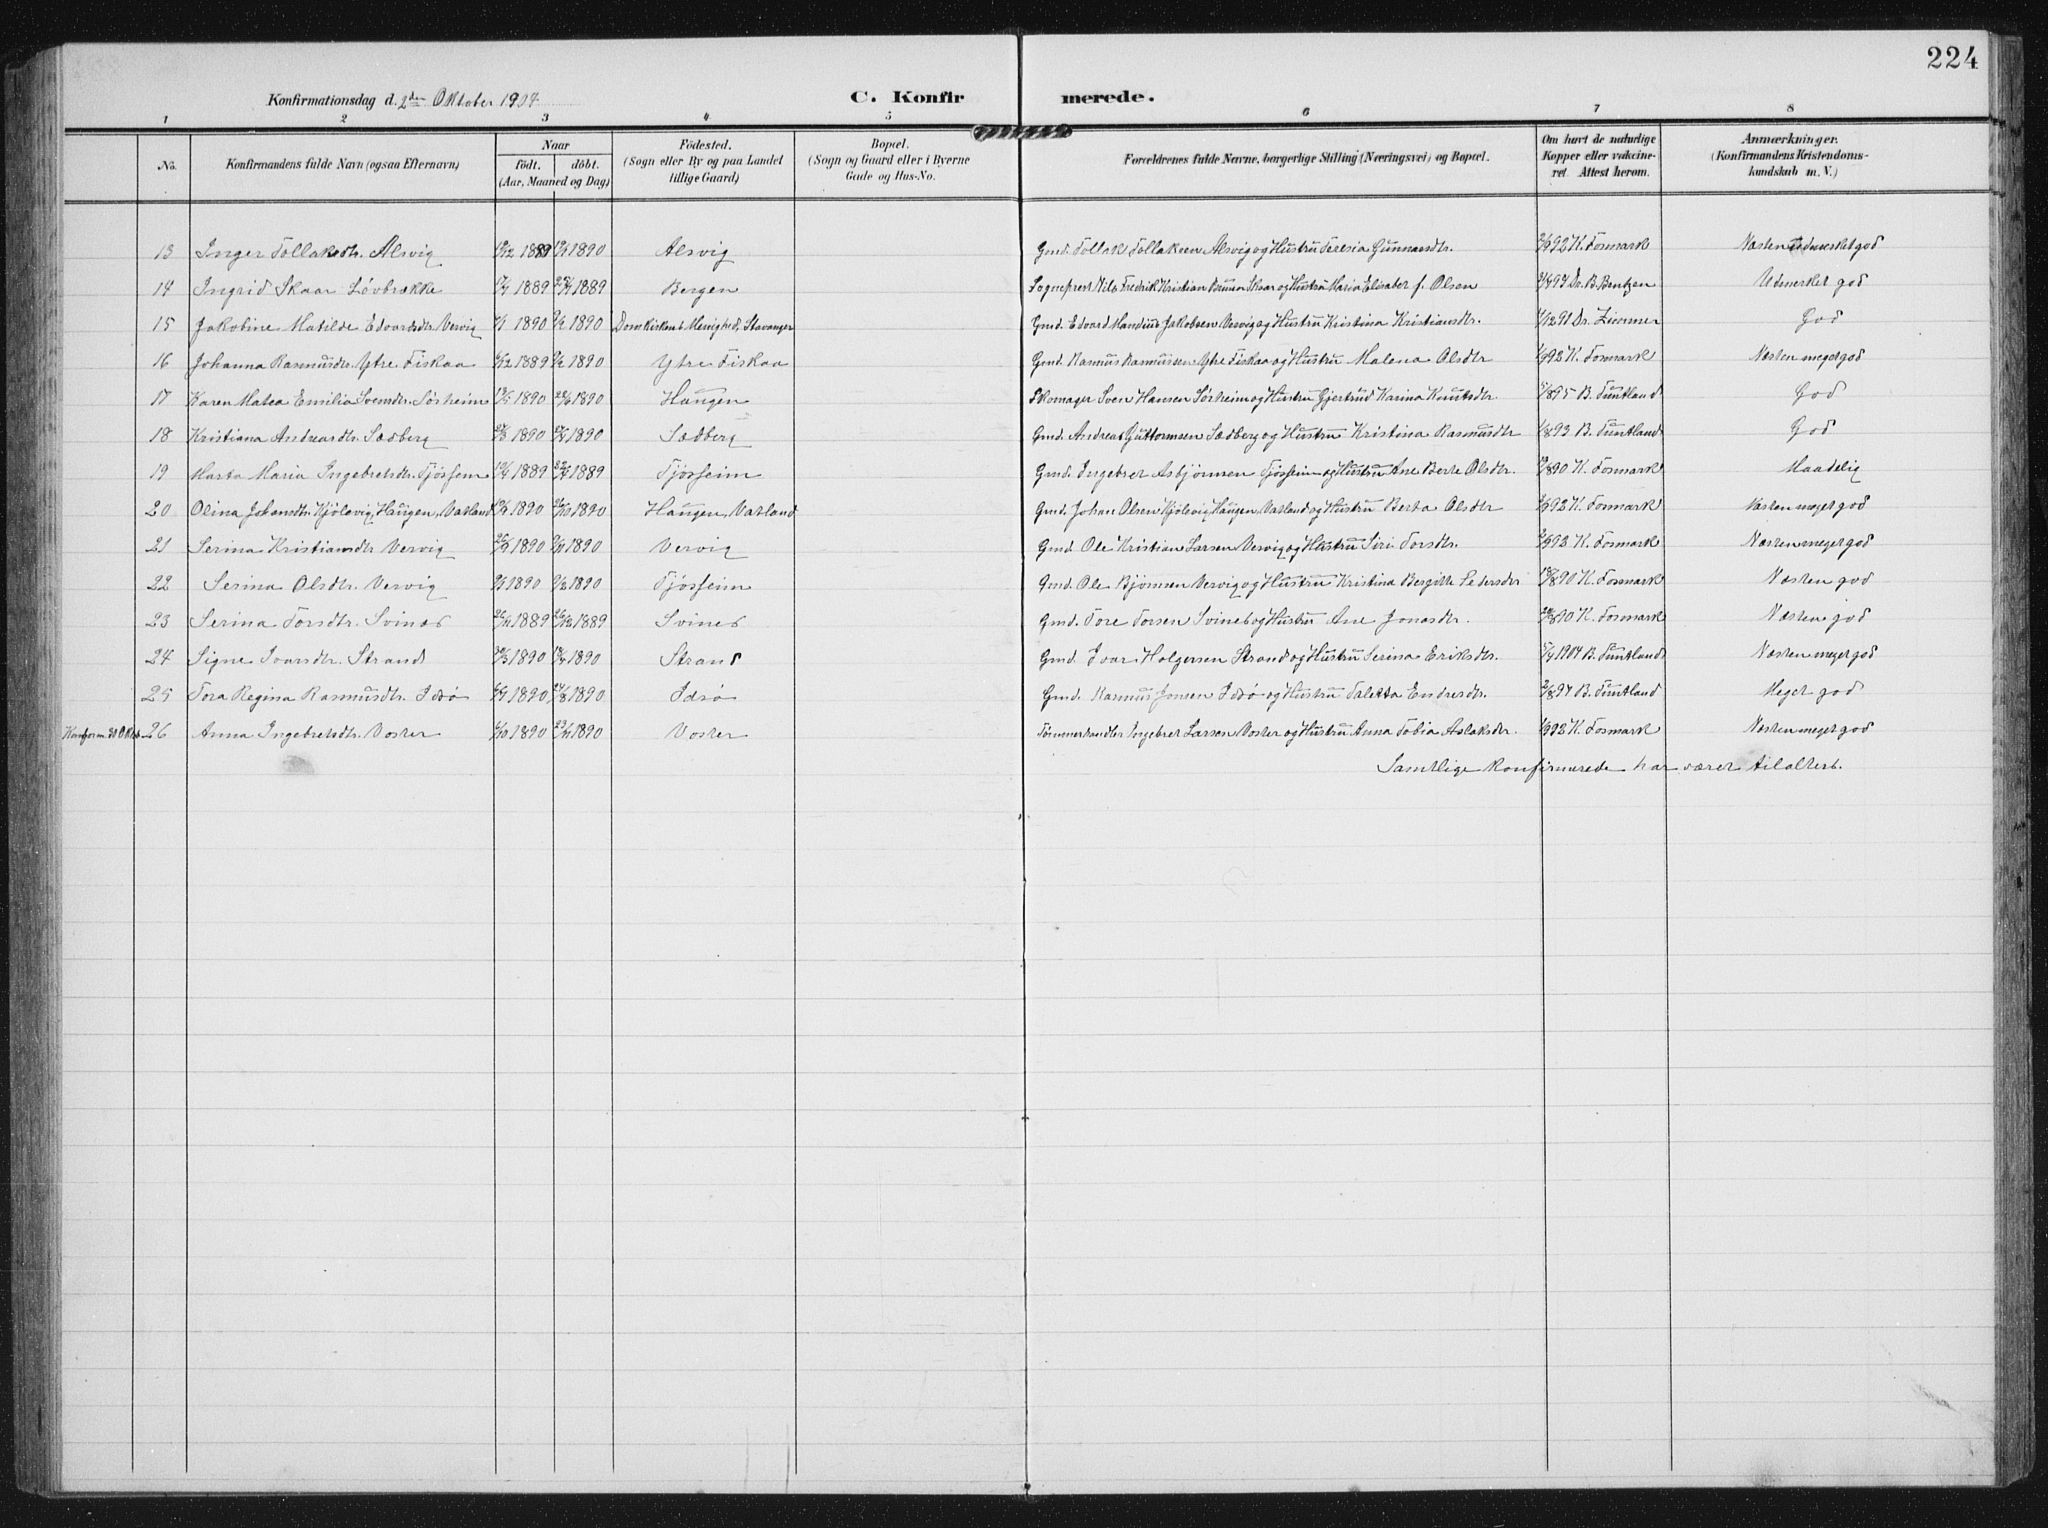 224
Konfirmationsdag d. 2den Oktober 1904 C. Konfirmerede.
1 2 3 4 5 6 7 8
No. Konfirmandens fulde Navn (ogsaa Efternavn) Naar födt. döbt. (Aar, Maaned og Dag) Födested. (Sogn eller By og paa Landet tillige Gaard) Bopæl. (Sogn og Gaard eller i Byerne Gade og Hus-No. Forældrenes fulde Navne, borgerlige Stilling (Næringsvei) og Bopæl. Om havt de naturlige Kopper eller vakcineret. Attest herom. Anmærkninger. (Konfirmandens Kristendomskundskab m. V.)
13 Inger Tollaksdtr. Alsvig 1889 1890 Alsvig Gmd. Tollak Tollaksen Alsvig og Hustru Teresia Gunnarsdtr. 92 K. Fosmark Næsten Udmerket god
14 Ingrid Skaar Lövbrække 1889 1889 Bergen Sogneprest Nils Fredrik Kristian Bruun Skaar og Hustru Maria Elisabet f. Olsen Dr. B. Bentzen Udmerket god
15 Jakobine Matilde Edvardsdtr. Vervig 1890 1890 Domkirkens Menighed, Stavanger Gmd. Edvard Mandius Jakobsen Vervig og Hustru Kristina Kristiansdtr. 91 Dr. Zimmer God
16 Johanna Rasmusdtr. Ytre Fiskaa 1889 1890 Ytre Fiskaa Gmd. Rasmus Rasmussen Ytre Fiskaa og Hustru Malena Olsdtr 92 K. Fosmark Næsten meget god
17 Karen Matea Emilia Svensdtr. Sörheim 1890 1890 Haugen Skomager Sven Hansen Sörheim og Hustru Gjertrud Karina Knutsdtr. 95 B. Tuntland God
18 Kristiana Andreasdtr. Sædberg 1890 1890 Sædberg Gmd. Andreas Guttormsen Sædberg og Hustru Kristina Rasmusdtr 93 B. Tuntland God
19 Marta Maria Ingebretsdtr. Tjösseim 1889 1889 Tjösseim Gmd. Ingebret Asbjörnsen Tjösseim og Hustru Ane Berte Olsdtr. 90 K. Fosmark Maadelig
20 Olina Johansdtr. Kjölevig, Haugen, Vatland 1890 1890 Haugen, Vatland Gmd. Johan Olsen Kjölevig, Haugen, Vatland og Hustru Berta Olsdtr 92 K. Fosmark Næsten meget god
21 Serina Kristiansdtr Vervig 1890 1890 Vervig Gmd. Ole Kristian Larsen Vervig og Hustru Siri Torsdtr. 92 K. Fosmark Næsten meget god
22 Serina Olsdtr. Vervig 1890 1890 Tjösseim Gmd. Ole Björnsen Vervig og Hustru Kristina Bergitte Pedersdtr 90 K. Fosmark Næsten god
23 Serina Torsdtr. Svines 1889 1889 Svines Gmd. Tore Torsen Svines og Hustru Ane Jonasdtr. 90 K. Fosmark Næsten god
24 Signe Ivarsdtr. Strand 1890 1890 Strand Gmd. Ivar Holgersen Strand og Hustru Serina Eriksdtr. 1904 B. Tuntland Næsten meget god
25 Tora Regina Rasmusdtr. Idsö 1890 1890 Idsö Gmd. Rasmus Jonsen Idsö og Hustru Taletta Endresdtr. 97 B. Tuntland Meget god
Konfirm. 30 Oktob. 26 Anna Ingebretsdtr. Voster 1890 1890 Voster Tömmerhandler Ingebret Larsen Voster og Hustru Anna Tobia Aslaksdtr. 92 K. Fosmark Næsten meget god
Samtlige konfirmerede har været tilalters.